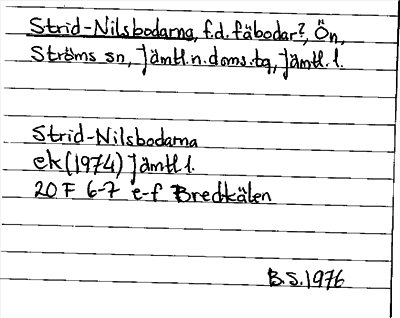 Strid-Nilsbodarna, f.d. fäbodar?, Ön,
Ströms sn, Jämtl.n.doms.tg, Jämtl.l.
Strid-Nilsbodarna
ek(1974) Jämtl l.
20 F 6-7 e-f Bredkälen
B.S.1976